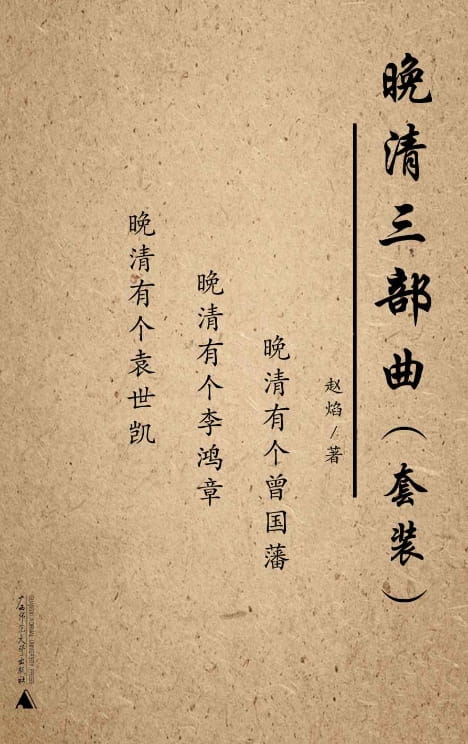 晚清三部曲（套装）
赵焰/著
晚清有个曾国藩
晚清有个李鸿章
晚清有个袁世凯
广西师范大学出版社
GUANGXI NORMAL UNIVERSITY PRESS